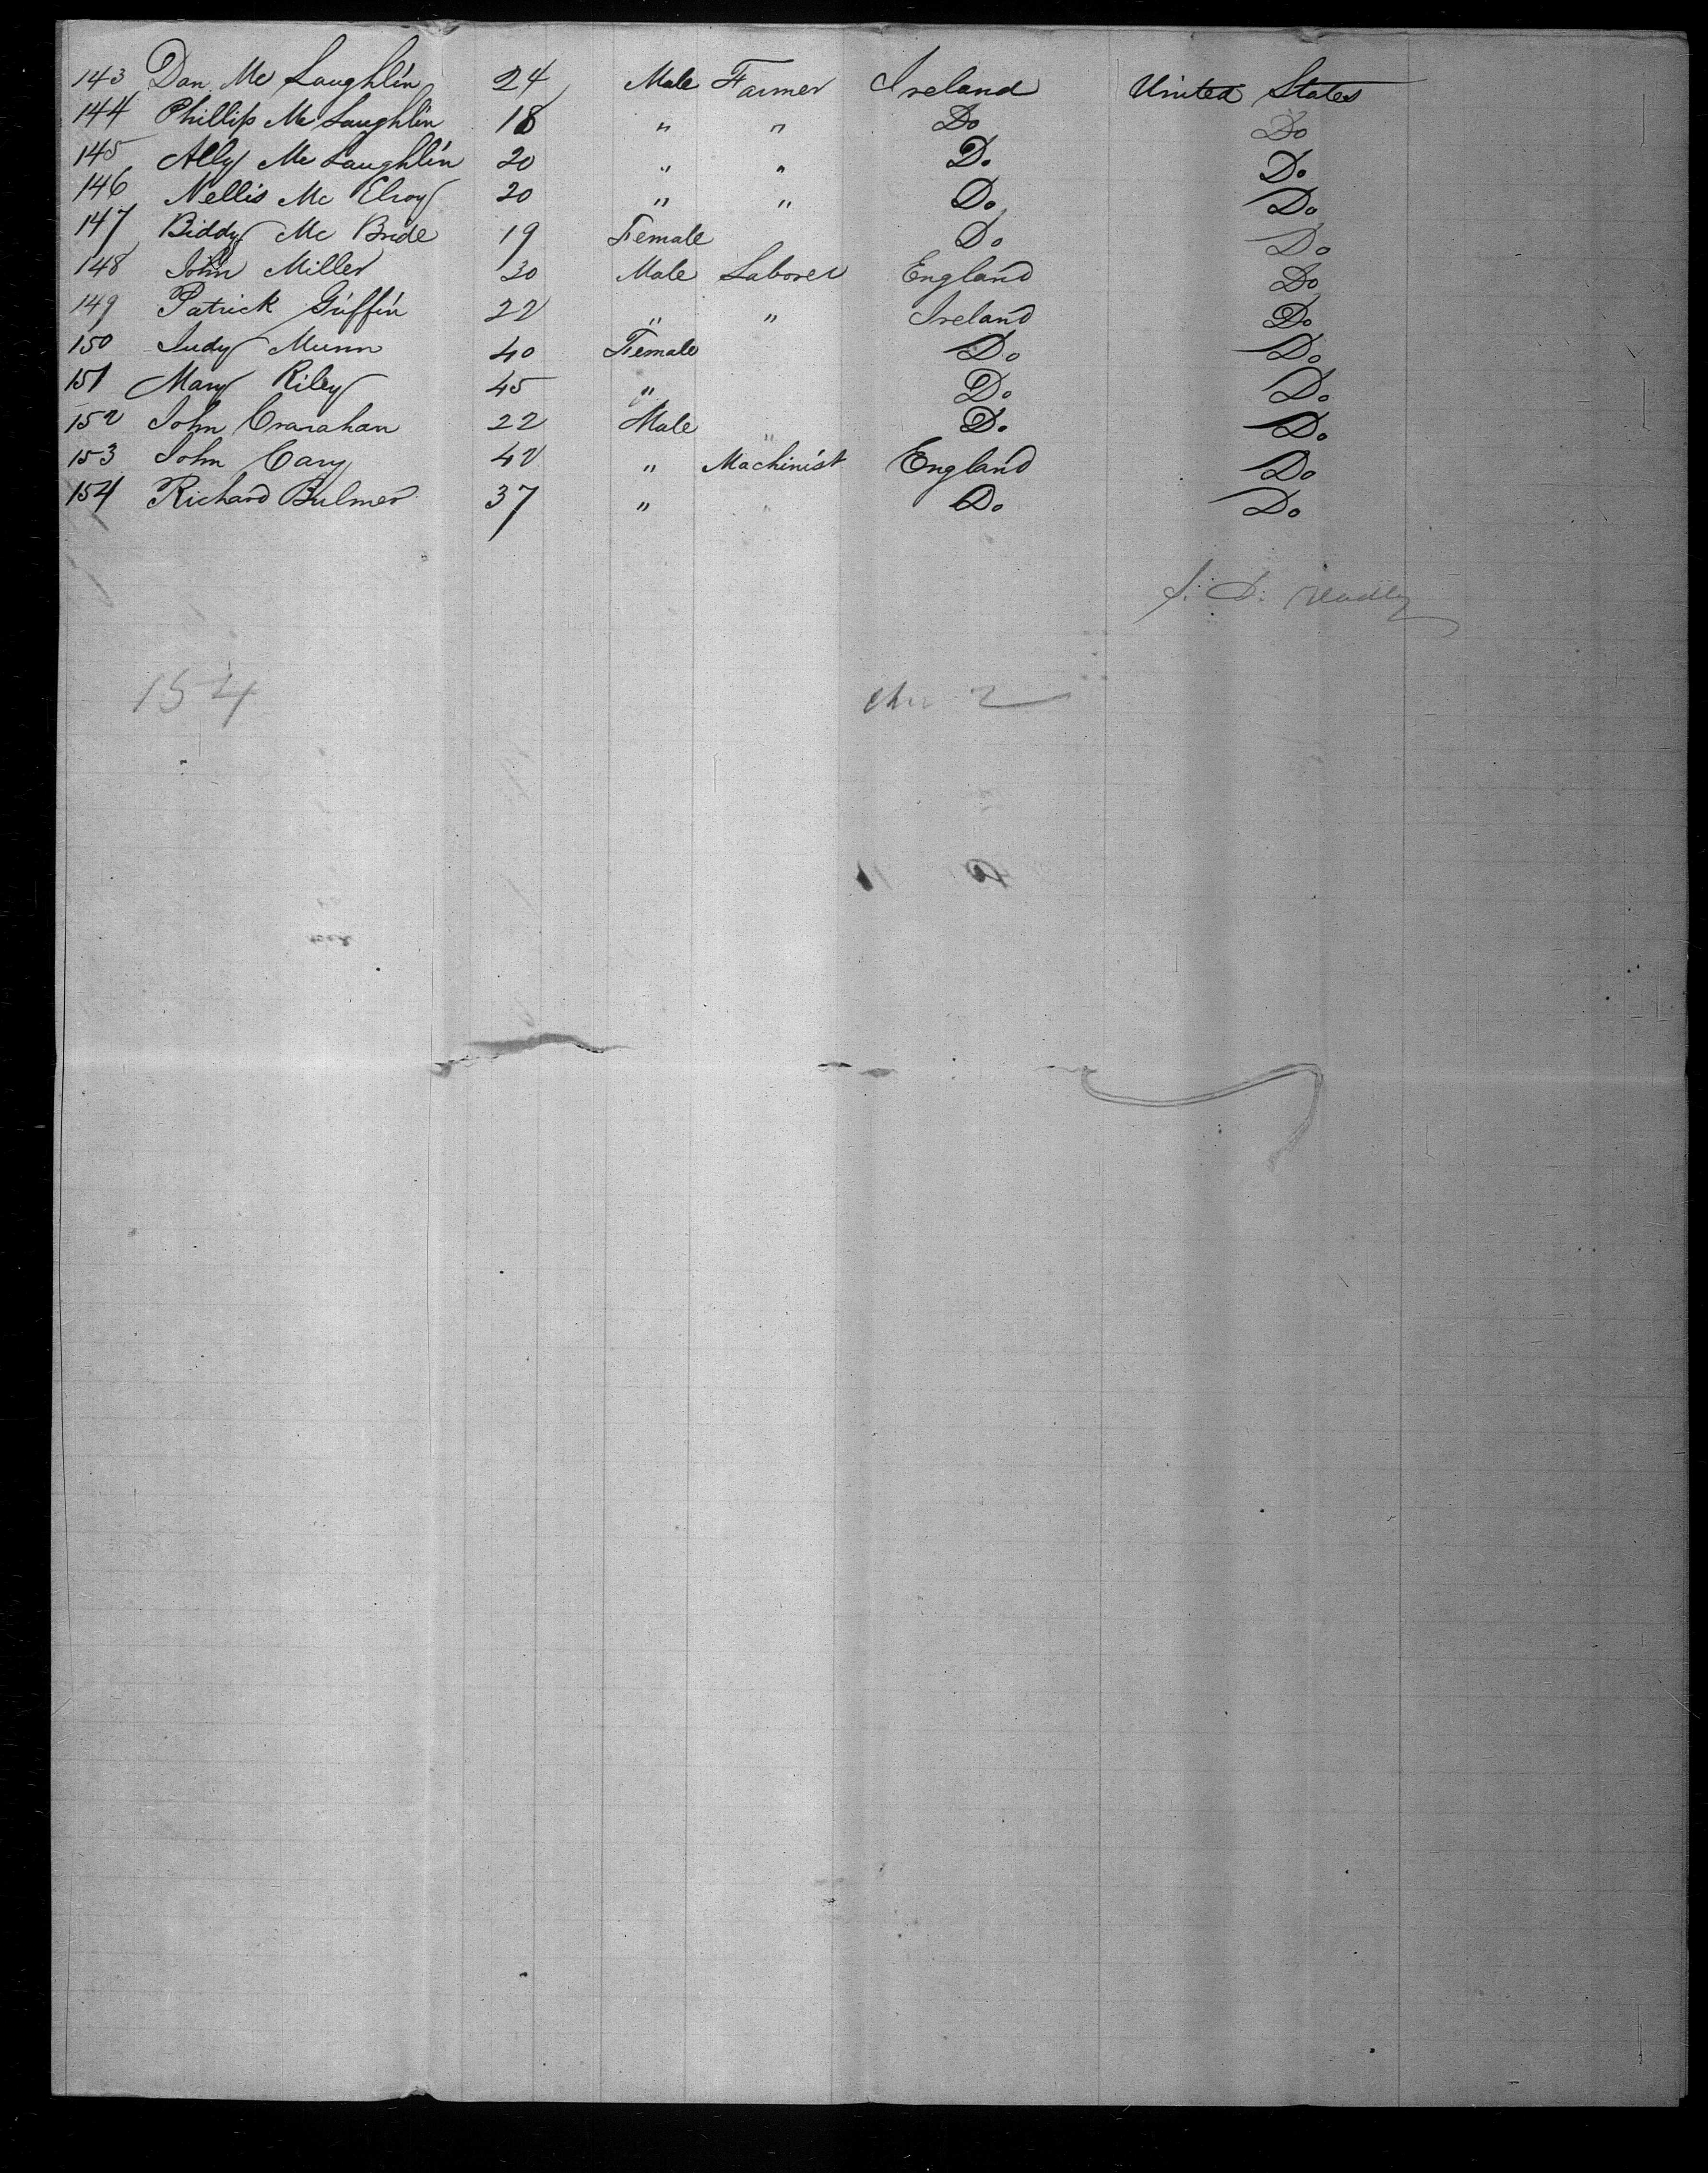 143 Dan Mc Laughlin 24 Male Farmer Ireland United States
144 Phillip Mc Laughlin 18 " " Do Do
145 Ally Mc Laughlin 20 " " Do Do
146 Nellis Mc Elroy 20 " " Do Do
147 Biddy Mc Bride 19 Female Do Do
148 John Miller 30 Male Laborer England Do
149 Patrick Griffin 22 " " Ireland Do
150 Judy Munn 40 Female Do Do
151 Mary Riley 45 " Do Do
152 John Cranahan 22 Male " Do Do
153 John Cary 42 " Machinist England Do
154 Richard Bulmer 37 " " Do Do
154